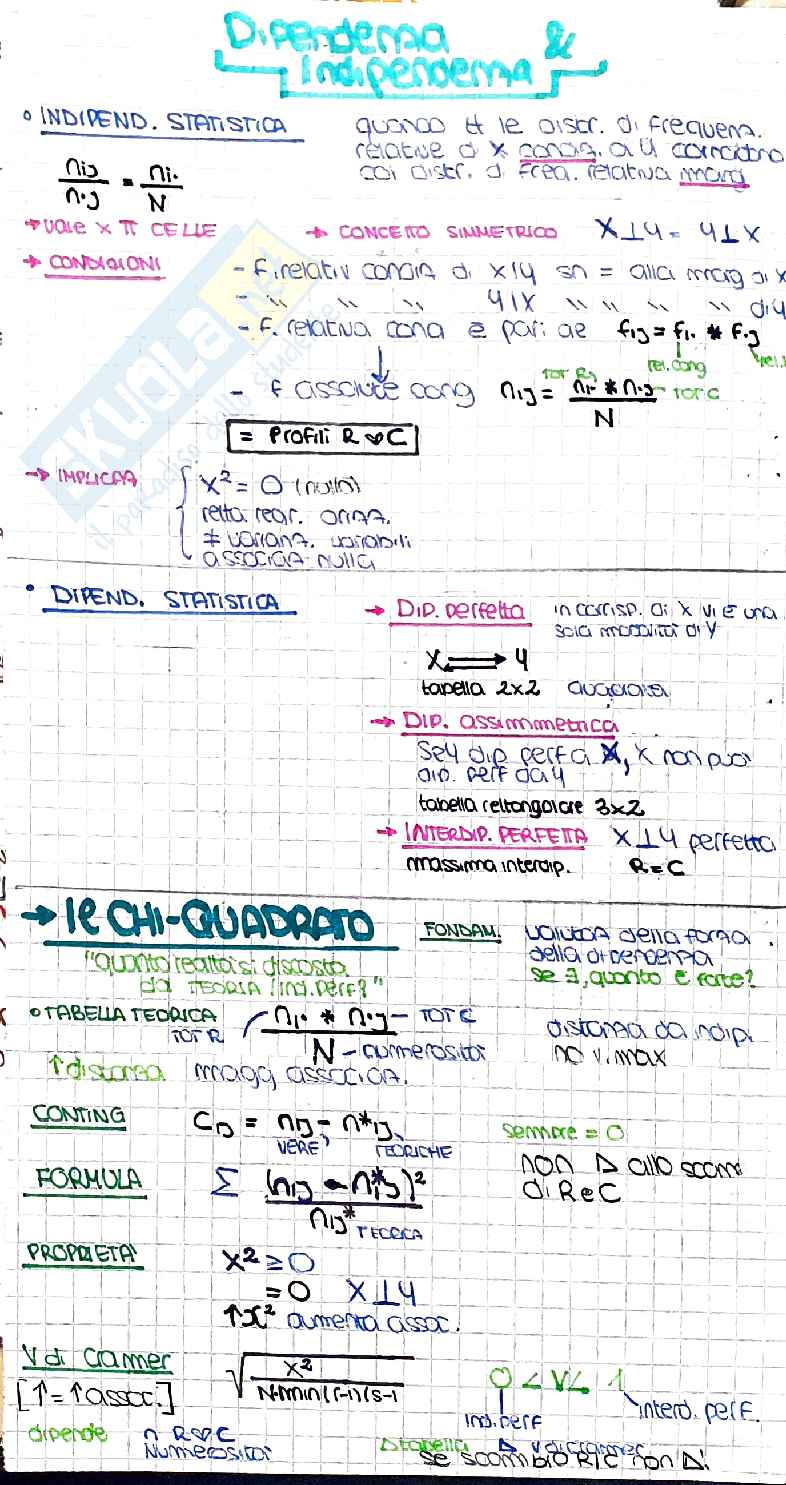 Dipendenza &
Indipendenza
• INDIPEND. STATISTICA
quando tt le distr. di frequenz.
relative di x condiz. a y coincidono
coi distr. di freq. relativa marg
nij/n.j = ni./N
→ vale x TT CELLE
→ CONCETTO SIMMETRICO X⊥Y = Y⊥X
→ CONDIZIONI
- f. relativ condiz di x|y sn = alla marg di x
- " " " y|x " " " " di y
- f. relativa cong è pari ae fij = fi. * f.j
rel. cong
↓
- f assolute cong nij = ni. * n.j / N
TOT R
TOT C
= Profili R o C
→ IMPLICAZ
x² = 0 (nullo)
retta regr. orizz.
≠ varianz. variabili
associaz nulla
SKUOLA.net
il paradiso dello studente
• DIPEND. STATISTICA
→ Dip. perfetta in corrisp. di X vi è una
sola modalità di Y
X ⇌ Y
tabella 2x2 quadrata
→ DIP. assimmetrica
Se y dip perf a X, x non può
dip. perf da y
tabella rettangolare 3x2
→ INTERDIP. PERFETTA X⊥Y perfetta
massima interdip. R=C
→ le CHI-QUADRATO
FONDAM. valutaz della forza
della dipendenza
se ∃, quanto è forte?
"quanto realtà si discosta
da TEORIA (ind. perf?"
• TABELLA TEORICA ni. * n.j / N
TOT R
TOT C
numerosità
distanza da indip.
no v. max
↑ distanza magg associaz.
CONTING Cij = nij - n*ij
VERE TEORICHE
sempre = 0
non Δ allo scam
di R e C
FORMULA Σ (nij - n*ij)² / nij*
TEORICA
PROPRIETA' x² ≥ 0
= 0 X⊥Y
↑x² aumenta assoc.
V di Cramer √ x² / N·min(r-1)(s-1
[↑=↑assoc.]
0 < V < 1
ind. perf
interd. perf.
dipende n R o C
Numerosità
Δtabella Δ v di cramer
se scambio R/C non Δ!